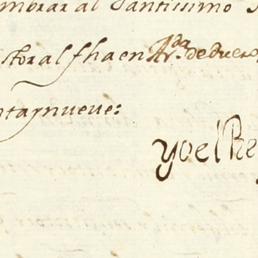 mbrar al Santissimo
storal fha en Ar.da de duero
ntaynueve:
yoel Re